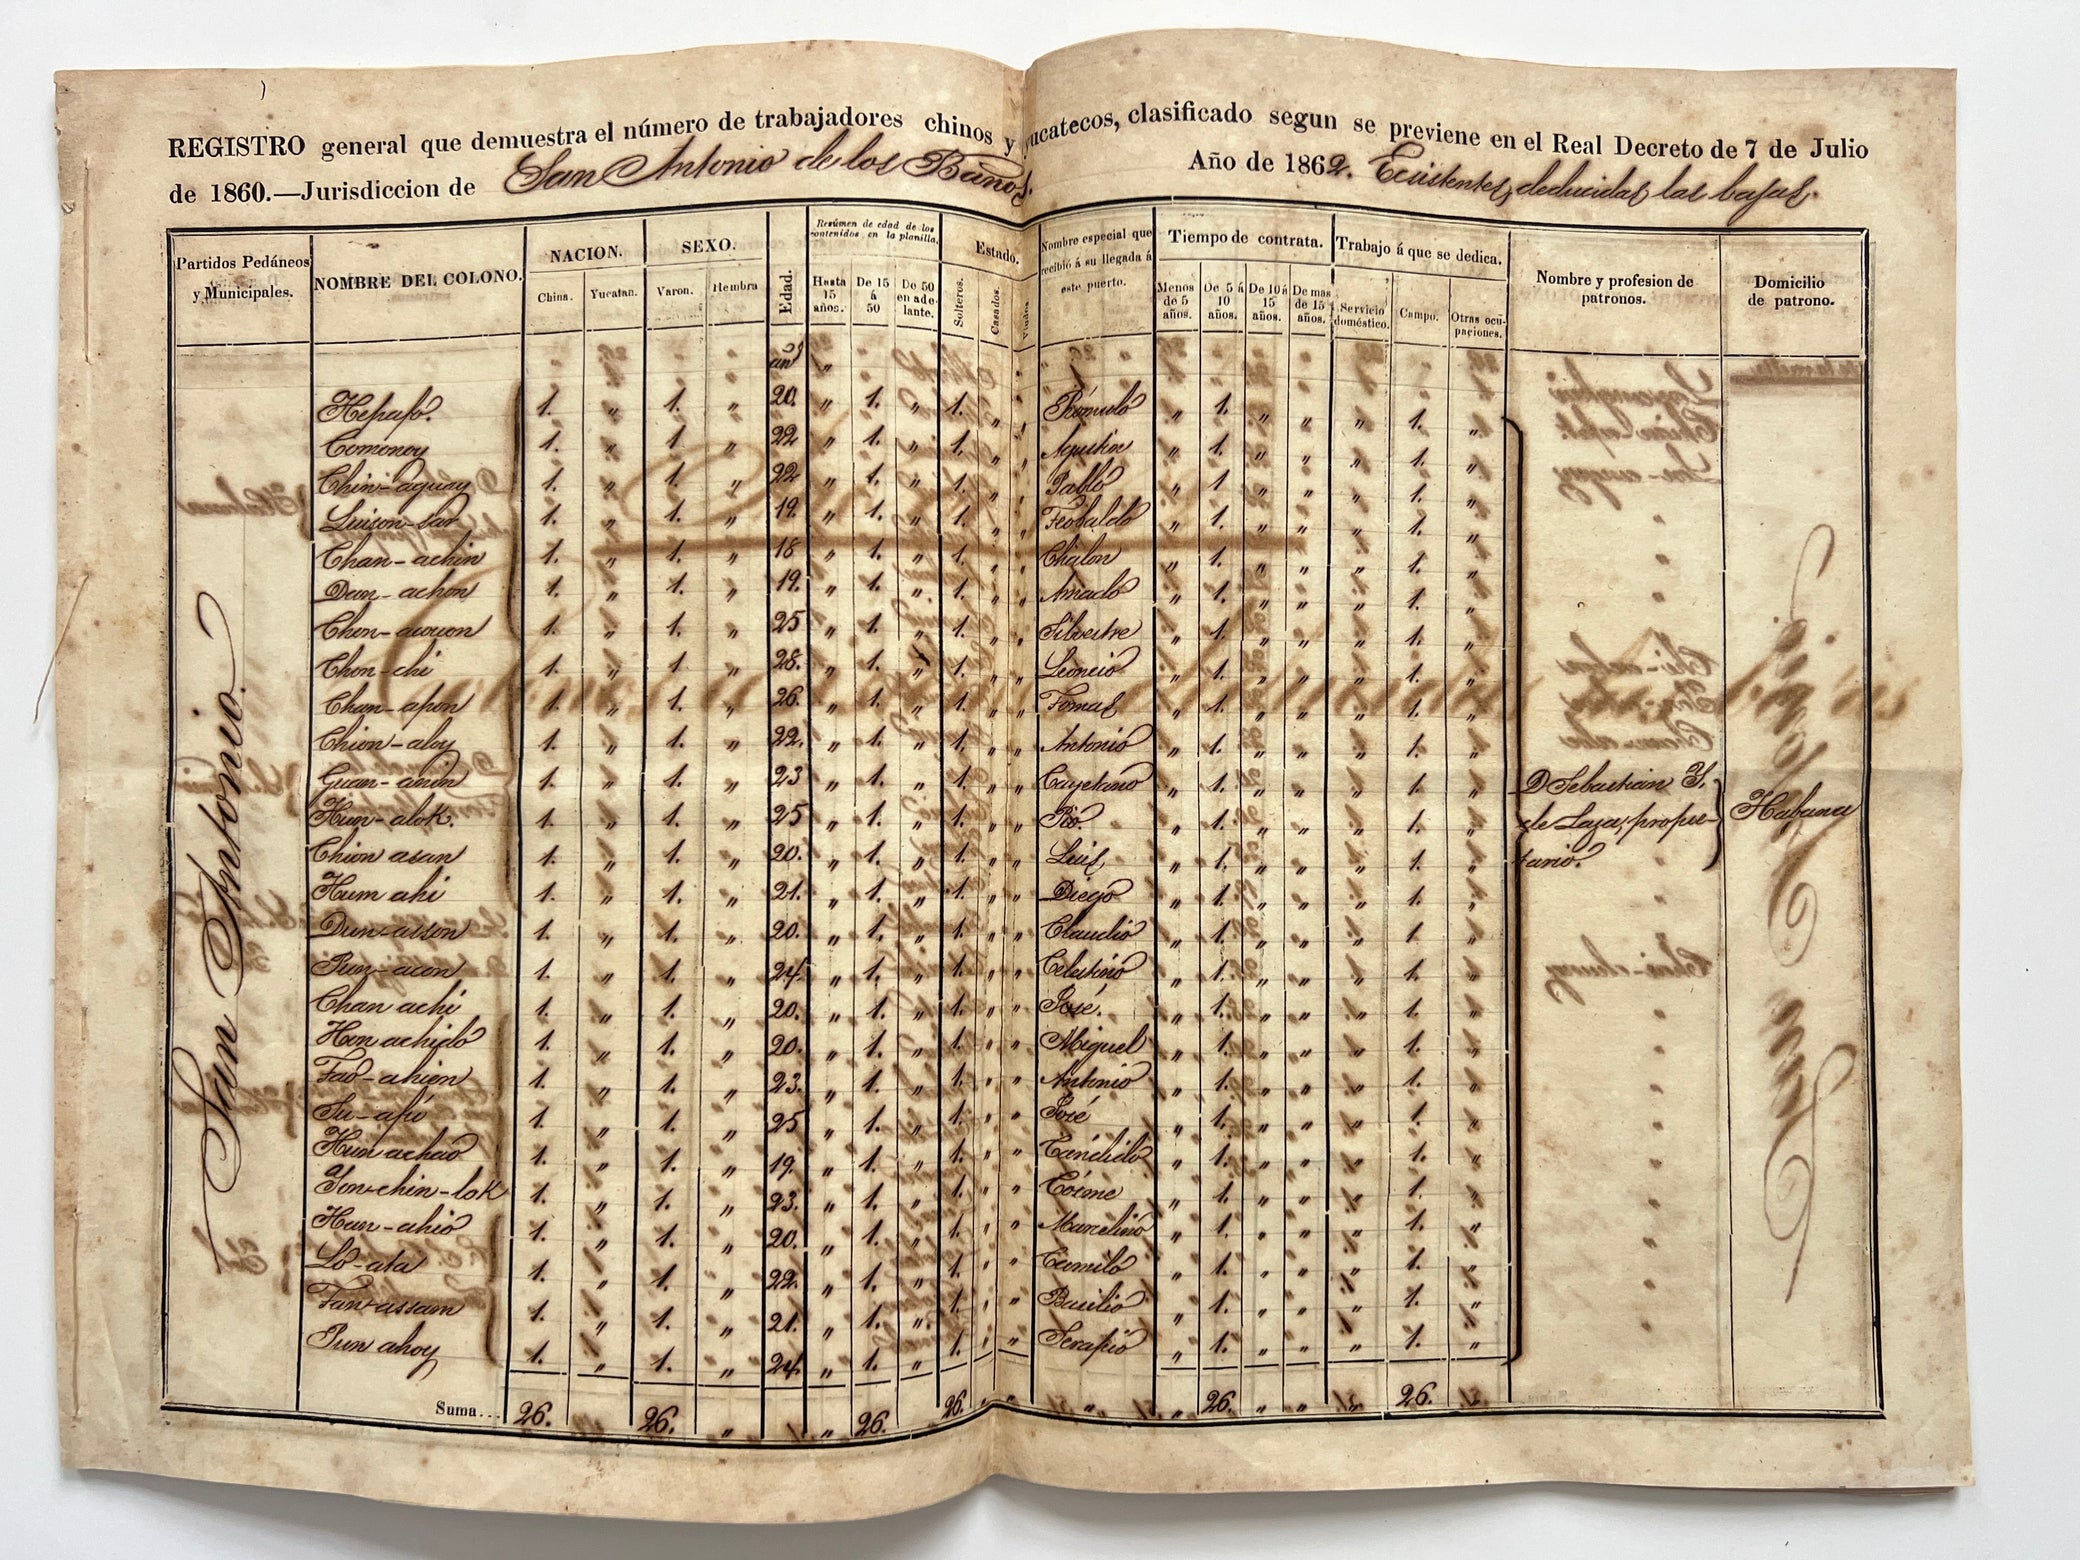 REGISTRO general que demuestra el número de trabajadores chinos y yucatecos, clasificado segun se previene en el Real Decreto de 7 de Julio
de 1860.—Jurisdiccion de San Antonio de los Baños. Año de 1862. Ecsistentes, deducidas las bajas.
Partidos Pedáneos y Municipales. NOMBRE DEL COLONO. NACION. SEXO. Edad. Resúmen de edad de los contenidos en la planilla. Estado. Nombre especial que recibió á su llegada á este puerto. Tiempo de contrata. Trabajo á que se dedica. Nombre y profesion de patronos. Domicilio de patrono.
China. Yucatan. Varon. Hembra Hasta 15 años. De 15 á 50 De 50 en adelante. Solteros. Casados. Viudos Menos de 5 años. De 5 á 10 años. De 10 á 15 años. De mas de 15 años. Servicio doméstico. Campo. Otras ocupaciones.
San Antonio.
Hepafo. 1. " 1. " 20. " 1. " 1. " " Rómulo " 1. " " " 1. "
Comonoy 1. " 1. " 22 " 1. " 1. " " Agustin " 1. " " " 1. "
Chin-aguay 1. " 1. " 22 " 1. " 1. " " Pablo " 1 " " " 1. "
Luison-sao 1. " 1. " 19. " 1. " 1. " " Teobaldo " 1. " " " 1. "
Chan-achin 1. " 1. " 18 " 1. " 1. " " Chalon " 1. " " " 1. "
Dun-achon 1. " 1. " 19. " 1. " 1. " " Amado " 1. " " " 1. "
Chon-aouon 1. " 1. " 25 " 1. " 1. " " Silvestre " 1. " " " 1. "
Chon-chi 1. " 1. " 28. " 1. " 1. " " Leoncio " 1. " " " 1. "
Chan-apon 1. " 1. " 26. " 1. " 1. " " Tomas " 1. " " " 1. "
Chion-aloy 1. " 1. " 22. " 1. " 1. " " Antonio " 1. " " " 1. "
Guan-anin 1. " 1. " 23 " 1. " 1. " " Cayetano " 1. " " " 1. " D Sebastian Y.
Hun-alok. 1. " 1. " 25 " 1. " 1. " " Pio. " 1. " " " 1. " de Laza, propie- Habana
Chion asan 1. " 1. " 20. " 1. " 1. " " Luis " 1. " " " 1. " tario.
Hum ahi 1. " 1. " 21. " 1. " 1. " " Diego " 1. " " " 1. "
Dun-asson 1. " 1. " 20. " 1. " 1. " " Claudio " 1. " " " 1. "
Pun-acon 1. " 1. " 24. " 1. " 1. " " Celestino " 1. " " " 1. "
Chan achi 1. " 1. " 20. " 1. " 1. " " José. " 1. " " " 1. "
Hon achido 1. " 1. " 20. " 1. " 1. " " Miguel " 1. " " " 1. "
Fao-ahion 1. " 1. " 23. " 1. " 1. " " Antonio " 1. " " " 1. "
Su-apó 1. " 1. " 25 " 1. " 1. " " José " 1. " " " 1. "
Hun achao 1. " 1. " 19. " 1. " 1. " " Cándido " 1. " " " 1. "
Son-chin-lok 1. " 1. " 23. " 1. " 1. " " Cósme " 1. " " " 1. "
Hun-ahió 1. " 1. " 20. " 1. " 1. " " Marcelino " 1. " " " 1. "
Lo-ata 1. " 1. " 22. " 1. " 1. " " Camilo " 1. " " " 1. "
Fan-assam 1. " 1. " 21. " 1. " 1. " " Basilio " 1. " " " 1. "
Pun ahoy 1. " 1. " 24. " 1. " 1. " " Serapio " 1. " " " 1. "
Suma... 26. 26. " " 26. 26. " " 26. " " 26.